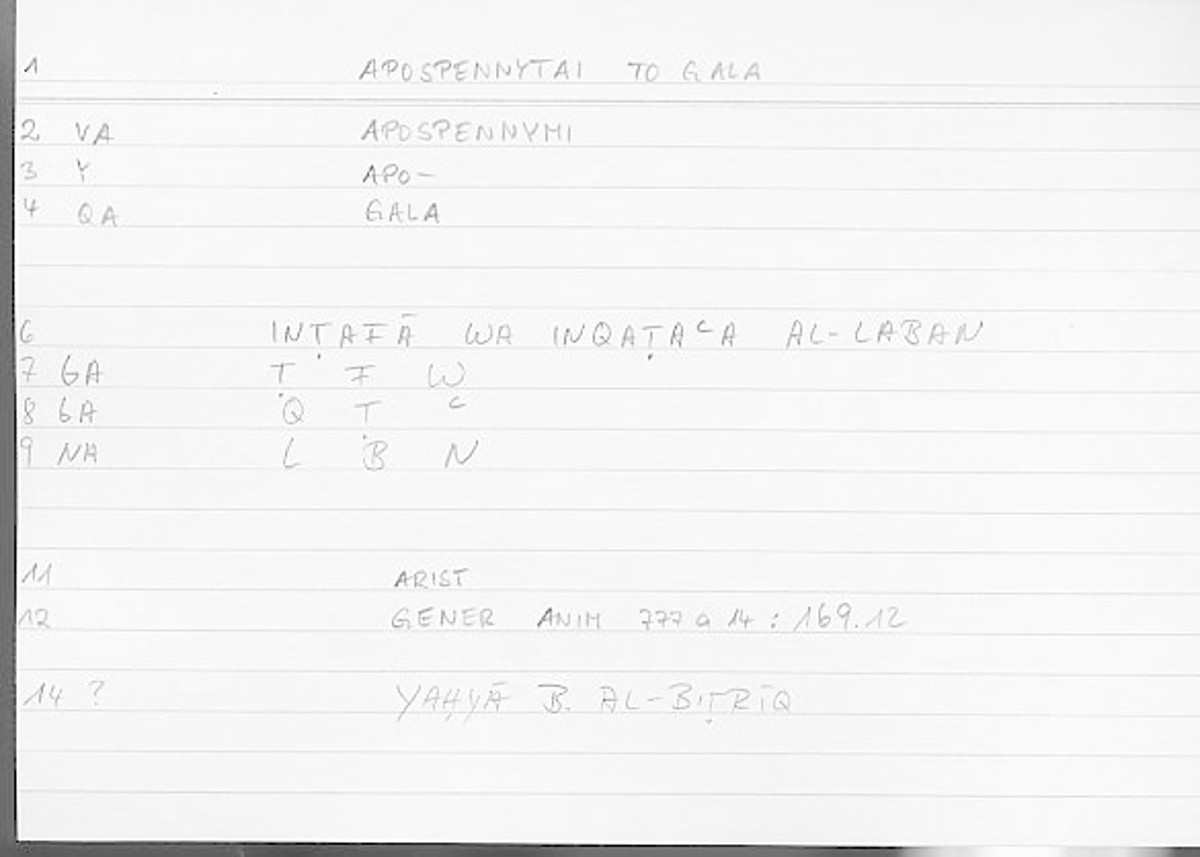 1 APOSPENNYTAI TO GALA
2 VA APOSPENNYMI
3 Y APO-
4 QA GALA
6 INṬAFĀ WA INQAṬAᶜA AL-LABAN
7 GA Ṭ F W
8 GA Q Ṭ ᶜ
9 NA L B N
11 ARIST
12 GENER ANIM 777 a 14 : 169.12
14 ? YAḤYĀ B. AL-BIṬRĪQ